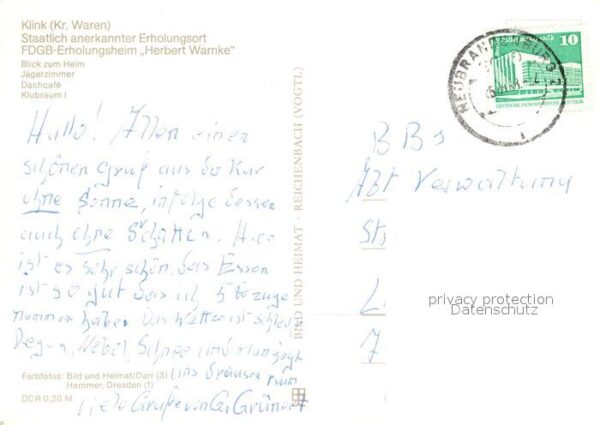 Klink (Kr. Waren)
Staatlich anerkannter Erholungsort
FDGB-Erholungsheim „Herbert Warnke“
Blick zum Heim
Jägerzimmer
Dachcafé
Klubraum I
Hallo! Allen einen
schönen Gruß aus der Kur
ohne Sonne, infolge dessen
auch ohne Schatten. Hier
ist es sehr schön, das Essen
ist so gut das ich 5 zuge
nommen habe. Das Wetter ist schlecht
Regen, Nebel, Schnee und man jagt
uns draußen rum
Viele Grüße von G. Grünert
Farbfotos: Bild und Heimat/Darr (3)
Hammer, Dresden (1)
DDR 0,20 M
BILD UND HEIMAT · REICHENBACH (VOGTL)
NEUBRANDENBURG 2
10
DEUTSCHE DEMOKRATISCHE REPUBLIK
BBS
Abt Verwaltung
St
L
7
privacy protection
Datenschutz